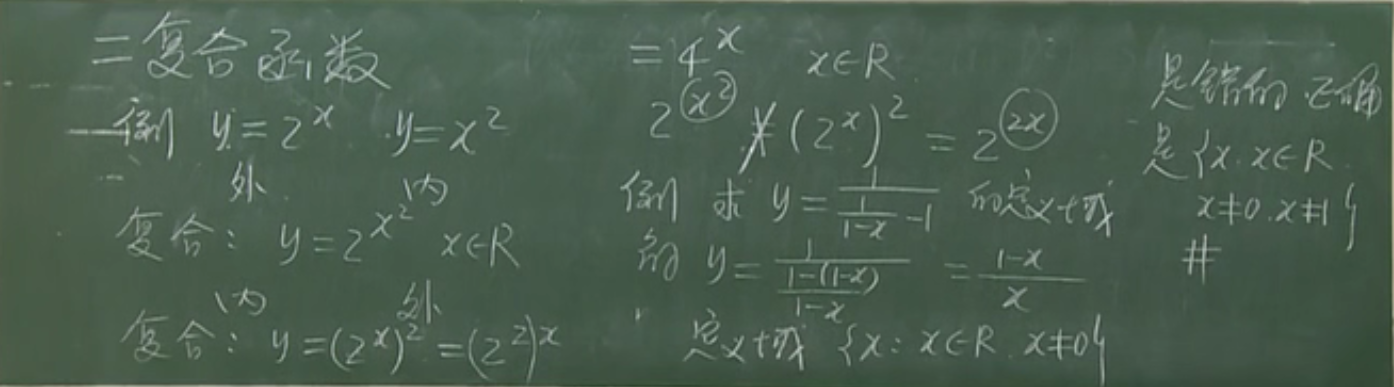 二 复合函数
例 y=2^x y=x^2
外 内
复合: y=2^{x^2} x∈R
内 外
复合: y=(2^x)^2=(2^2)^x
=4^x x∈R
2^{x^2} ≠ (2^x)^2 = 2^{2x}
例 求 y=\frac{1}{\frac{1}{1-x}-1} 的定义域
解 y=\frac{1}{\frac{1-(1-x)}{1-x}} = \frac{1-x}{x}
定义域 {x: x∈R. x≠0}
是错的.正确
是{x. x∈R.
x≠0. x≠1}
#